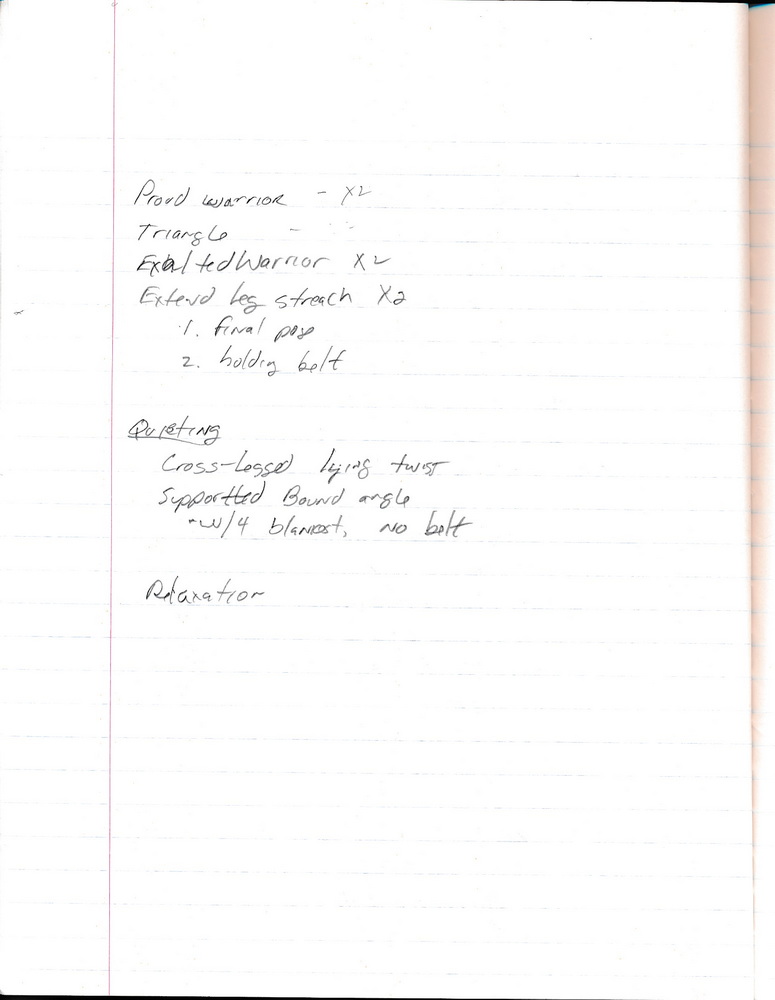 Proud warrior - x2
Triangle -
Exalted Warrior x2
Extend leg streach x2
1. final pose
2. holding belt
Quieting
Cross-legged lying twist
Supportted Bound angle
- w/4 blankest, no belt
Relaxation